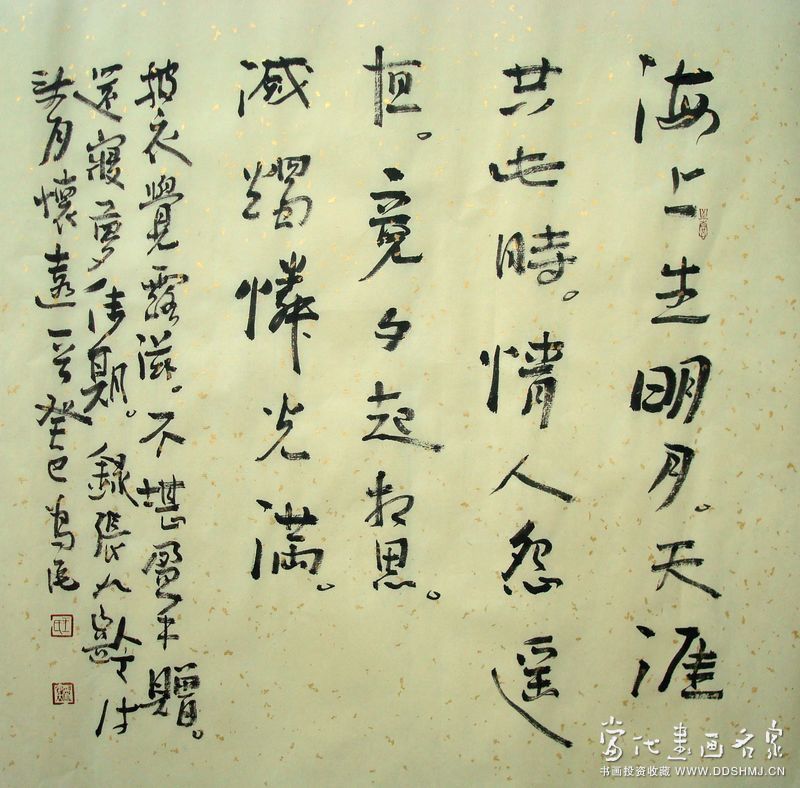 海上生明月。天涯
共此時。情人怨遥
恒。竟夕起相思。
滅燭憐光滿。
披衣覺露滋。不堪盈手贈。
還寢夢佳期。錄張九齡詩
望月懷遠一首癸巳
當代書画名家
书画投资收藏 WWW.DDSHMJ.CN